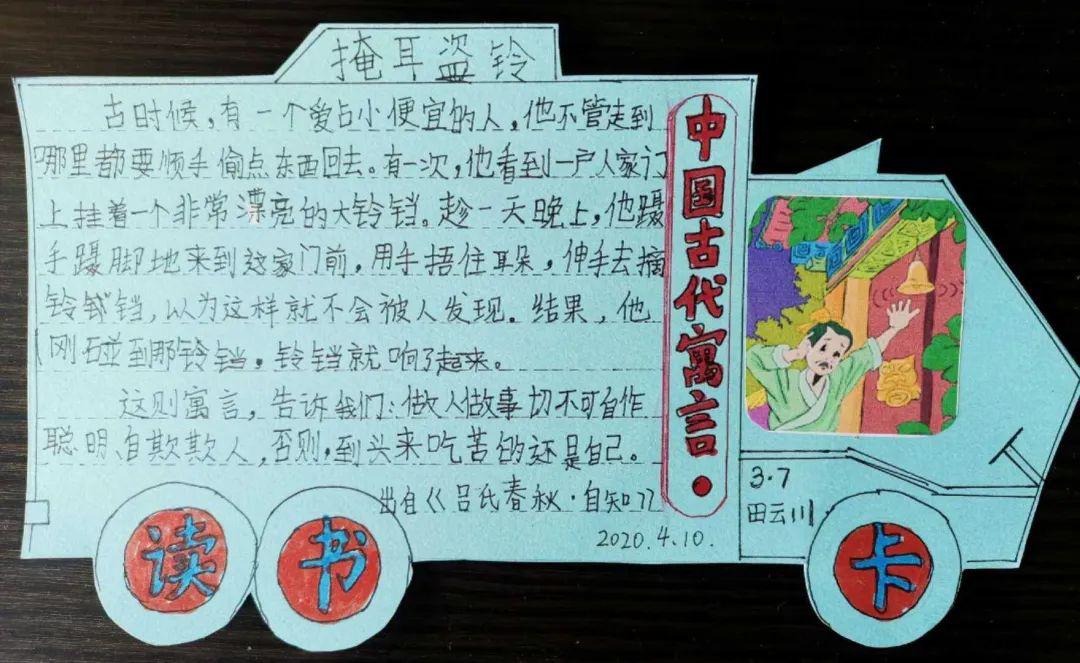 掩耳盗铃
古时候，有一个爱占小便宜的人，他不管走到
哪里都要顺手偷点东西回去。有一次，他看到一户人家门
上挂着一个非常漂亮的大铃铛。趁一天晚上，他蹑
手蹑脚地来到这家门前，用手捂住耳朵，伸手去摘
铃铛，以为这样就不会被人发现。结果，他
刚碰到那铃铛。铃铛就响了起来。
这则寓言，告诉我们：做人做事切不可自作
聪明、自欺欺人，否则，到头来吃苦的还是自己。
出自《吕氏春秋·自知》
2020.4.10.
中国古代寓言·
3.7
田云川
读书卡